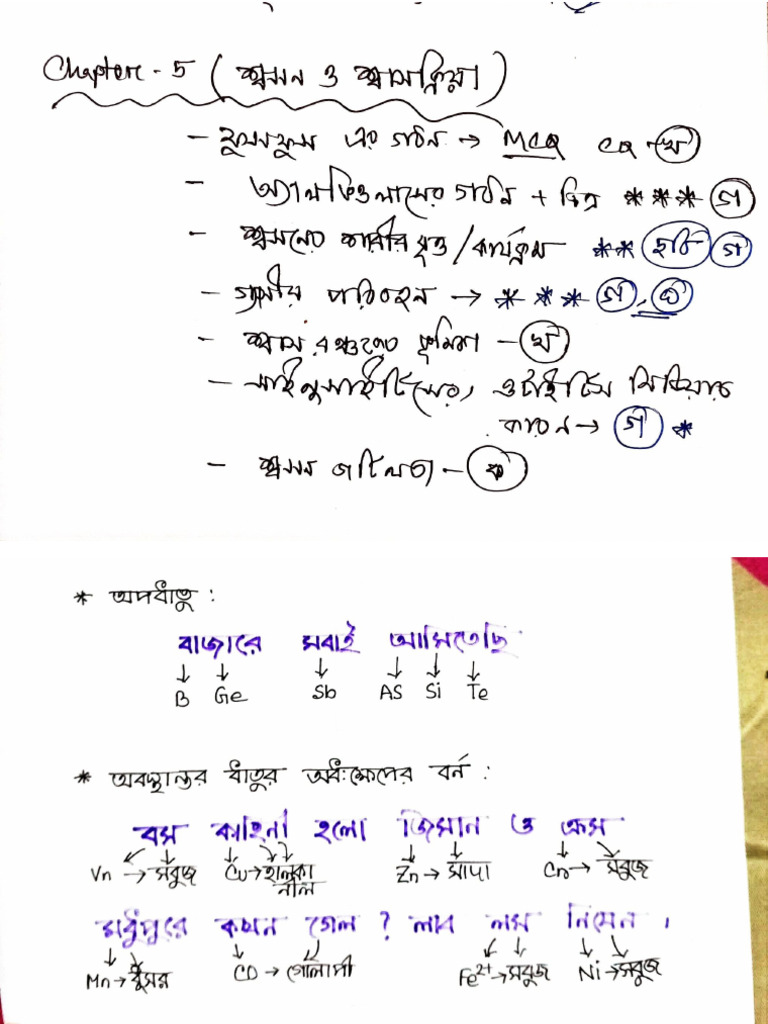 Chapter - 5 ( শ্বসন ও শ্বাসক্রিয়া )
- ফুসফুস এর গঠন → MCQ CQ - খ
- অ্যালভিওলাসের গঠন + চিত্র *** গ
- শ্বসনের শারীরবৃত্ত / কার্যক্রম ** ছবি গ
- গ্যাসীয় পরিবহন → *** গ, ঘ
- শ্বাসরঞ্জকের ভূমিকা - খ
- সাইনুসাইটিসের, ওটাইটিস মিডিয়ার
কারন → গ *
- শ্বসন জটিলতা - ক
* অপধাতু :
বাজারে সবাই আসিতেছি
↓ ↓ ↓ ↓ ↓ ↓
B Ge Sb AS Si Te
* অবস্থান্তর ধাতুর অধঃক্ষেপের বর্ন :
বস কাহিনী হলো জিসান ও ক্রস
Vn → সবুজ Cu → হালকা নীল Zn → সাদা Cr → সবুজ
মধুপুরে কখন গেল ? লাব লস নিসেন ।
Mn → ধুসর CO → গোলাপী Fe²⁺ → সবুজ Ni → সবুজ